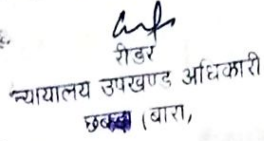 रीडर
न्यायालय उपखण्ड अधिकारी
(बारा,